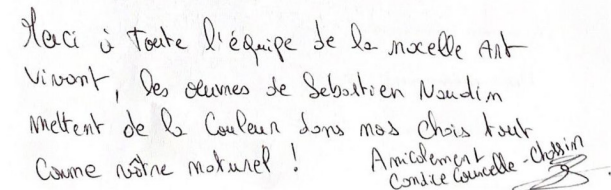 Merci à toute l'équipe de la nacelle Art
Vivant, les œuvres de Sebastien Naudin
mettent de la Couleur dans nos chais tout
Comme vôtre naturel !
Amicalement
Courcelle - Chassin